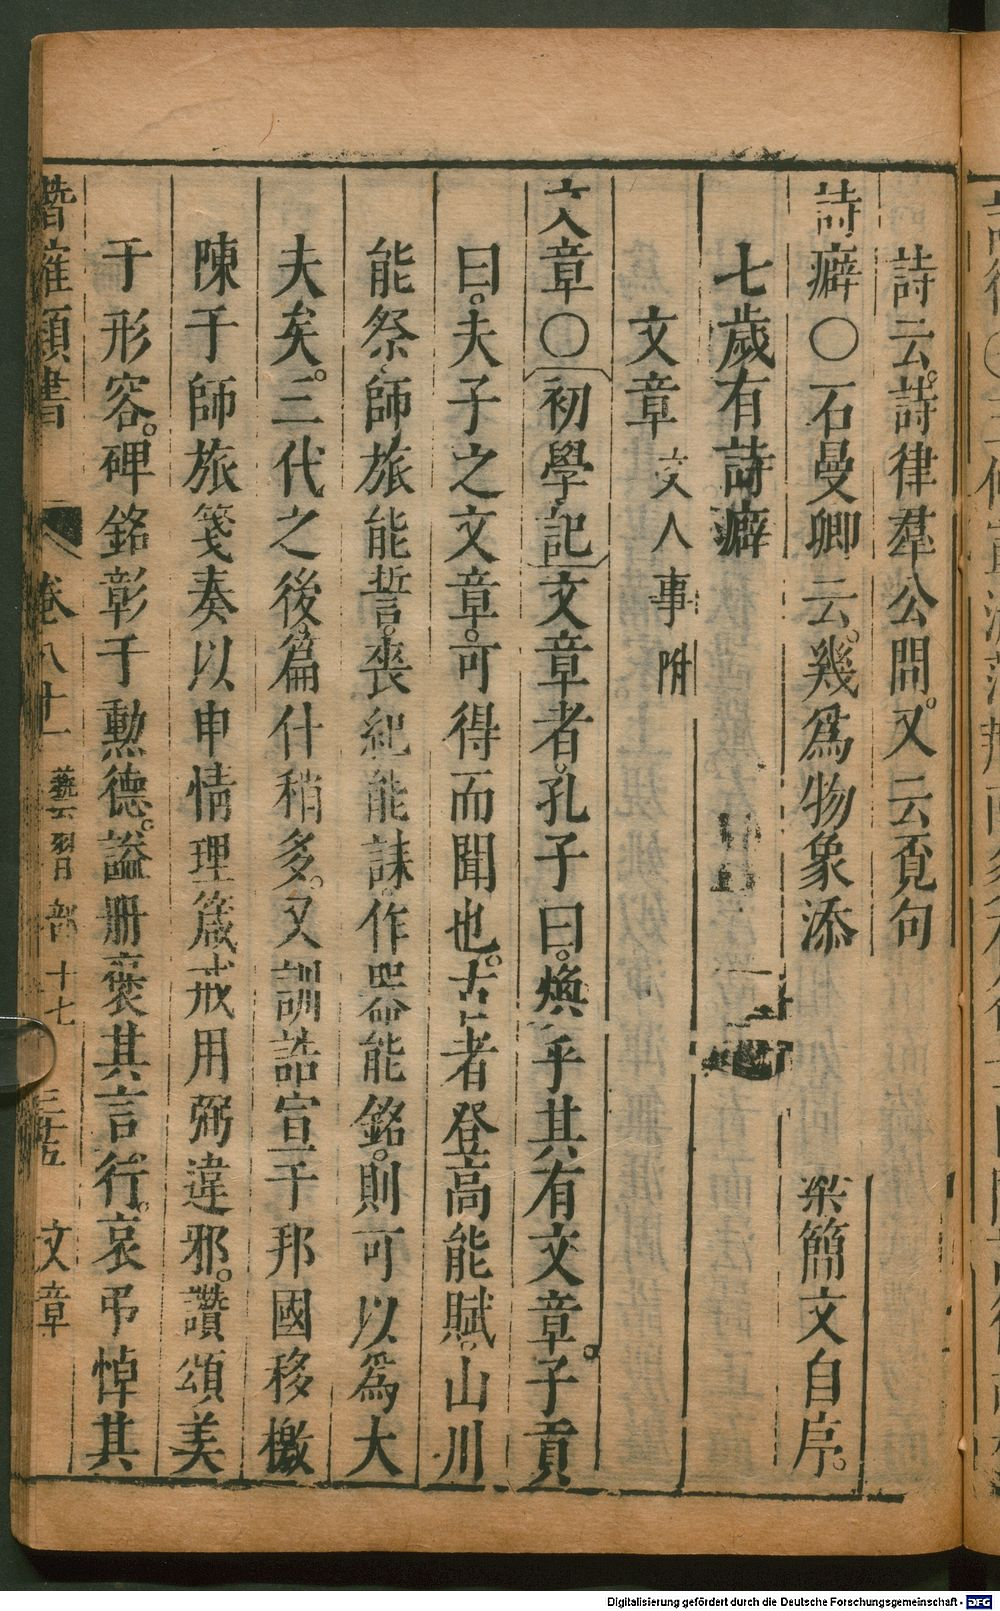 詩云。詩律羣公問。又云覓句
詩癖〇石曼卿云。幾爲物象添
梁簡文自序。
七歲有詩癖
文章 文人事附
文章〇初學記文章者。孔子曰。煥乎其有文章。子貢
曰。夫子之文章。可得而聞也。古者登高能賦。山川
能祭師旅能誓。喪紀能誄。作器能銘。則可以爲大
夫矣。三代之後。篇什稍多。又訓誥宣于邦國移檄
陳于師旅箋奏以申情理箴戒用弼違邪。讚頌美
于形容。碑銘彰于勳德。諡册褒其言行。哀弔悼其
潛確類書 卷八十一 藝習部十七 三十五 文章
Digitalisierung gefördert durch die Deutsche Forschungsgemeinschaft - DFG